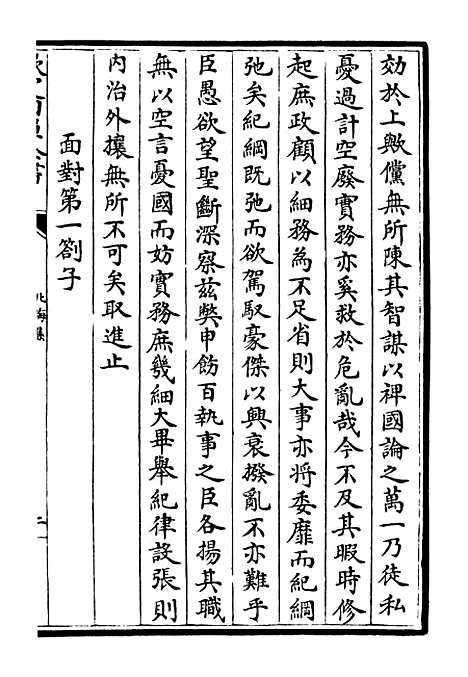 効於上歟儻無所陳其智謀以裨國論之萬一乃徒私
憂過計空廢實務亦奚救於危亂哉今不及其暇時修
起庶政顧以細務為不足省則大事亦將委靡而紀綱
弛矣紀綱既弛而欲駕馭豪傑以興衰撥亂不亦難乎
臣愚欲望聖斷深察兹弊申飭百執事之臣各揚其職
無以空言憂國而妨實務庶幾細大畢舉紀律設張則
内治外攘無所不可矣取進止
面對第一劄子
北海集